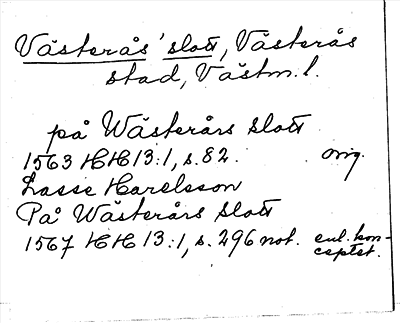 Västerås' slott, Västerås
stad, Västm. l.
på Wästerårs Slott
1563 HH 13:1, s. 82. orig.
Lasse Harelsson
På Wästerårs Slott
1567 HH 13:1, s. 296 not. enl. kon-
ceptet.